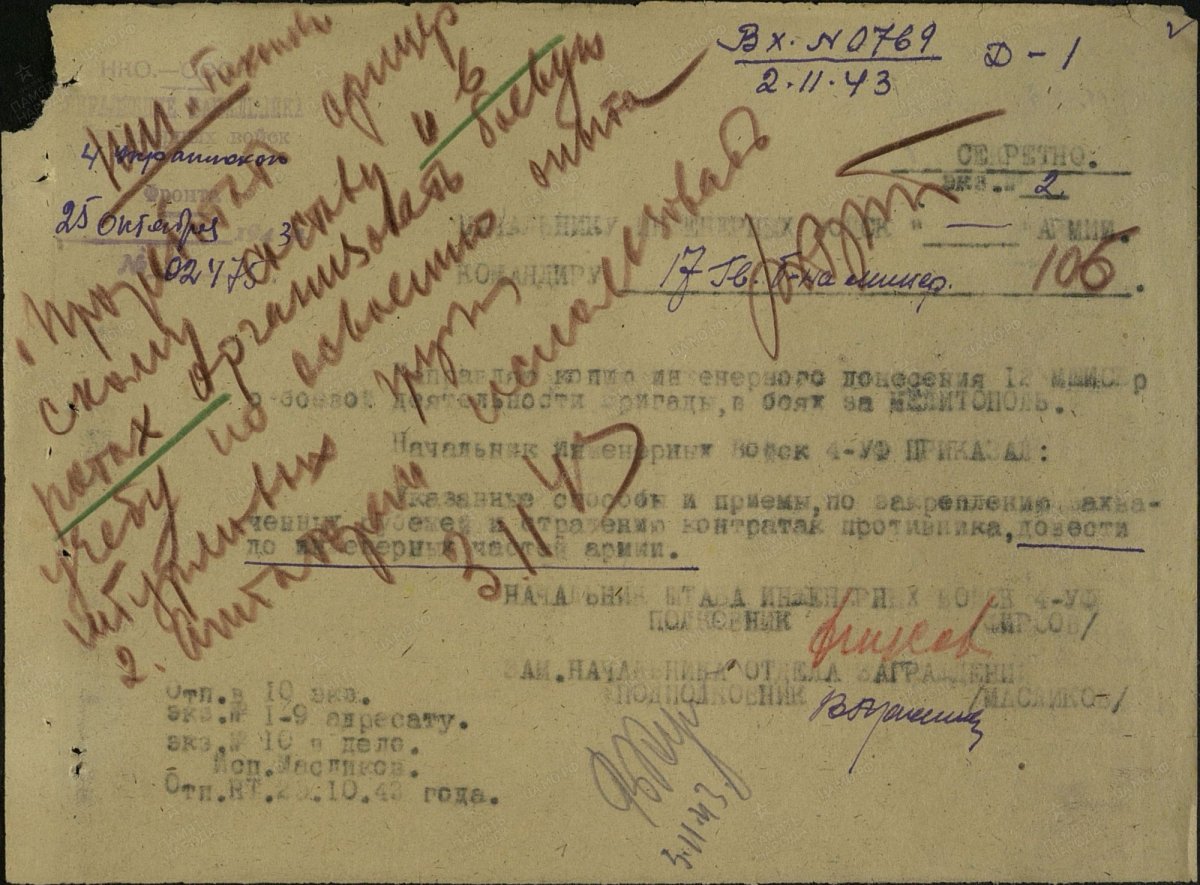 Вх. N 0769
2.11.43
Д-1
НКО.—
4 Украинского
Фронта
25 Октября 1943
№ 02475
СЕКРЕТНО.
экз.№ 2
НАЧАЛЬНИКУ ИНЖЕНЕРНЫХ ВОЙСК "—" АРМИИ.
КОМАНДИРУ 17 Гв. б-на минер. 106
Направляю копию инженерного донесения 12 ШИСбр
о боевой деятельности бригады, в боях за МЕЛИТОПОЛЬ.
Начальник Инженерных Войск 4-УФ ПРИКАЗАЛ:
Указанные способы и приемы, по закреплению захва-
ченных рубежей и отражению контратак противника, довести
до инженерных частей армии.
НАЧАЛЬНИК ШТАБА ИНЖЕНЕРНЫХ ВОЙСК 4-УФ
ПОЛКОВНИК /ФИРСОВ/
ЗАМ.НАЧАЛЬНИКА ОТДЕЛА ЗАГРАЖДЕНИЙ
ПОДПОЛКОВНИК /МАСЛИКОВ/
Отп.в 10 экз.
экз.№ 1-9 адресату.
экз.№ 10 в дело.
Исп.Масликов.
Отп.НТ.25.10.43 года.
офицер
скому составу и в
ротах организовать боевую
учебу по освоению опыта
штурмовых групп
2. использовать
3.11.43
3.11.43